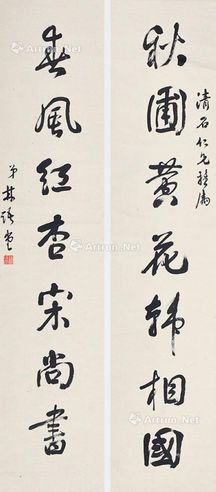 清石仁兄雅属
秋圃黄花韩相國
春風红杏宋尚書
弟林语堂